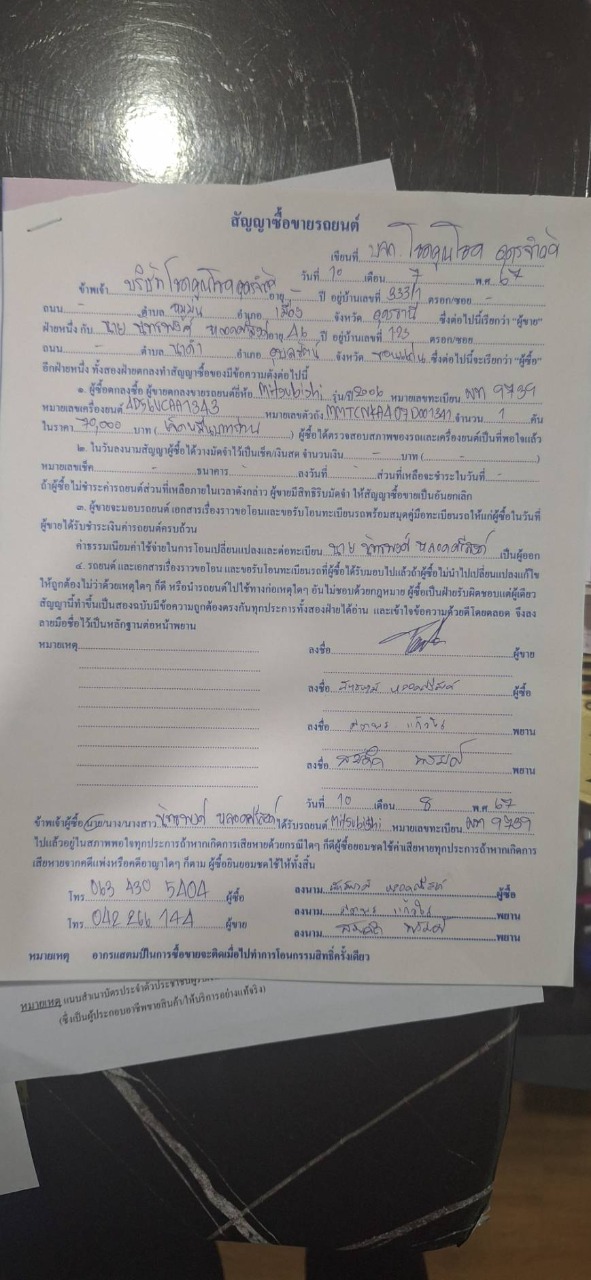 สัญญาซื้อขายรถยนต์
เขียนที่ บจก. โชคคูณโชค อุดรจำกัด
วันที่ 10 เดือน 7 พ.ศ. 67
ข้าพเจ้า บริษัท โชคคูณโชคอุดรจำกัด อายุ - ปี อยู่บ้านเลขที่ 333/1 ตรอก/ซอย -
ถนน - ตำบล อำเภอ เมือง จังหวัด อุดรธานี ซึ่งต่อไปนี้เรียกว่า "ผู้ขาย"
ฝ่ายหนึ่ง กับ นาย อายุ 46 ปี อยู่บ้านเลขที่ 123
ถนน - ตำบล นาคำ อำเภอ อุบลรัตน์ จังหวัด ขอนแก่น ซึ่งต่อไปนี้จะเรียกว่า "ผู้ซื้อ"
อีกฝ่ายหนึ่ง ทั้งสองฝ่ายตกลงทำสัญญาซื้อของมีข้อความดังต่อไปนี้
๑. ผู้ซื้อตกลงซื้อ ผู้ขายตกลงขายรถยนต์ยี่ห้อ Mitsubishi รุ่น/ปี 2006 หมายเลขทะเบียน 9739
หมายเลขเครื่องยนต์ 4D56UCAA1343 หมายเลขตัวถัง MMTCNKA407D001341 จำนวน 1 คัน
ในราคา 70,000 บาท ( เจ็ดหมื่นบาทถ้วน ) ผู้ซื้อได้ตรวจสอบสภาพของรถและเครื่องยนต์เป็นที่พอใจแล้ว
๒. ในวันลงนามสัญญาผู้ซื้อได้วางมัดจำไว้เป็นเช็ค/เงินสด จำนวนเงิน - บาท ( - )
หมายเลขเช็ค - ธนาคาร - ลงวันที่ - ส่วนที่เหลือจะชำระในวันที่ -
ถ้าผู้ซื้อไม่ชำระค่ารถยนต์ส่วนที่เหลือภายในเวลาดังกล่าว ผู้ขายมีสิทธิริบมัดจำ ให้สัญญาซื้อขายเป็นอันยกเลิก
๓. ผู้ขายจะมอบรถยนต์ เอกสารเรื่องราวขอโอนและขอรับโอนทะเบียนรถพร้อมสมุดคู่มือทะเบียนรถให้แก่ผู้ซื้อในวันที่
ผู้ขายได้รับชำระเงินค่ารถยนต์ครบถ้วน
ค่าธรรมเนียมค่าใช้จ่ายในการโอนเปลี่ยนแปลงและต่อทะเบียน นาย เป็นผู้ออก
๔. รถยนต์ และเอกสารเรื่องราวขอโอน และขอรับโอนทะเบียนรถที่ผู้ซื้อได้รับมอบไปแล้วถ้าผู้ซื้อไม่นำไปเปลี่ยนแปลงแก้ไข
ให้ถูกต้องไม่ว่าด้วยเหตุใดๆ ก็ดี หรือนำรถยนต์ไปใช้ทางก่อเหตุใดๆ อันไม่ชอบด้วยกฎหมาย ผู้ซื้อเป็นฝ่ายรับผิดชอบแต่ผู้เดียว
สัญญานี้ทำขึ้นเป็นสองฉบับมีข้อความถูกต้องตรงกันทุกประการทั้งสองฝ่ายได้อ่าน และเข้าใจข้อความด้วยดีโดยตลอด จึงลง
ลายมือชื่อไว้เป็นหลักฐานต่อหน้าพยาน
หมายเหตุ ลงชื่อ ผู้ขาย
ลงชื่อ ผู้ซื้อ
ลงชื่อ แก้วใน พยาน
ลงชื่อ สมคิด พรมดี พยาน
วันที่ 10 เดือน 8 พ.ศ. 67
ข้าพเจ้าผู้ซื้อ นาย/นาง/นางสาว ได้รับรถยนต์ Mitsubishi หมายเลขทะเบียน 9739
ไปแล้วอยู่ในสภาพพอใจทุกประการถ้าหากเกิดการเสียหายด้วยกรณีใดๆ ก็ดีผู้ซื้อยอมชดใช้ค่าเสียหายทุกประการถ้าหากเกิดการ
เสียหายจากคดีแพ่งหรือคดีอาญาใดๆ ก็ตาม ผู้ซื้อยินยอมชดใช้ให้ทั้งสิ้น
โทร. 063 430 5404 ผู้ซื้อ ลงนาม ผู้ซื้อ
โทร. 042 266 144 ผู้ขาย ลงนาม แก้วใน พยาน
ลงนาม สมคิด พรมดี พยาน
หมายเหตุ อากรแสตมป์ในการซื้อขายจะติดเมื่อไปทำการโอนกรรมสิทธิ์ครั้งเดียว
หมายเหตุ แนบสำเนาบัตรประจำตัวประชาชน
(ซึ่งเป็นผู้ประกอบอาชีพขายสินค้า/ให้บริการอย่างแท้จริง)